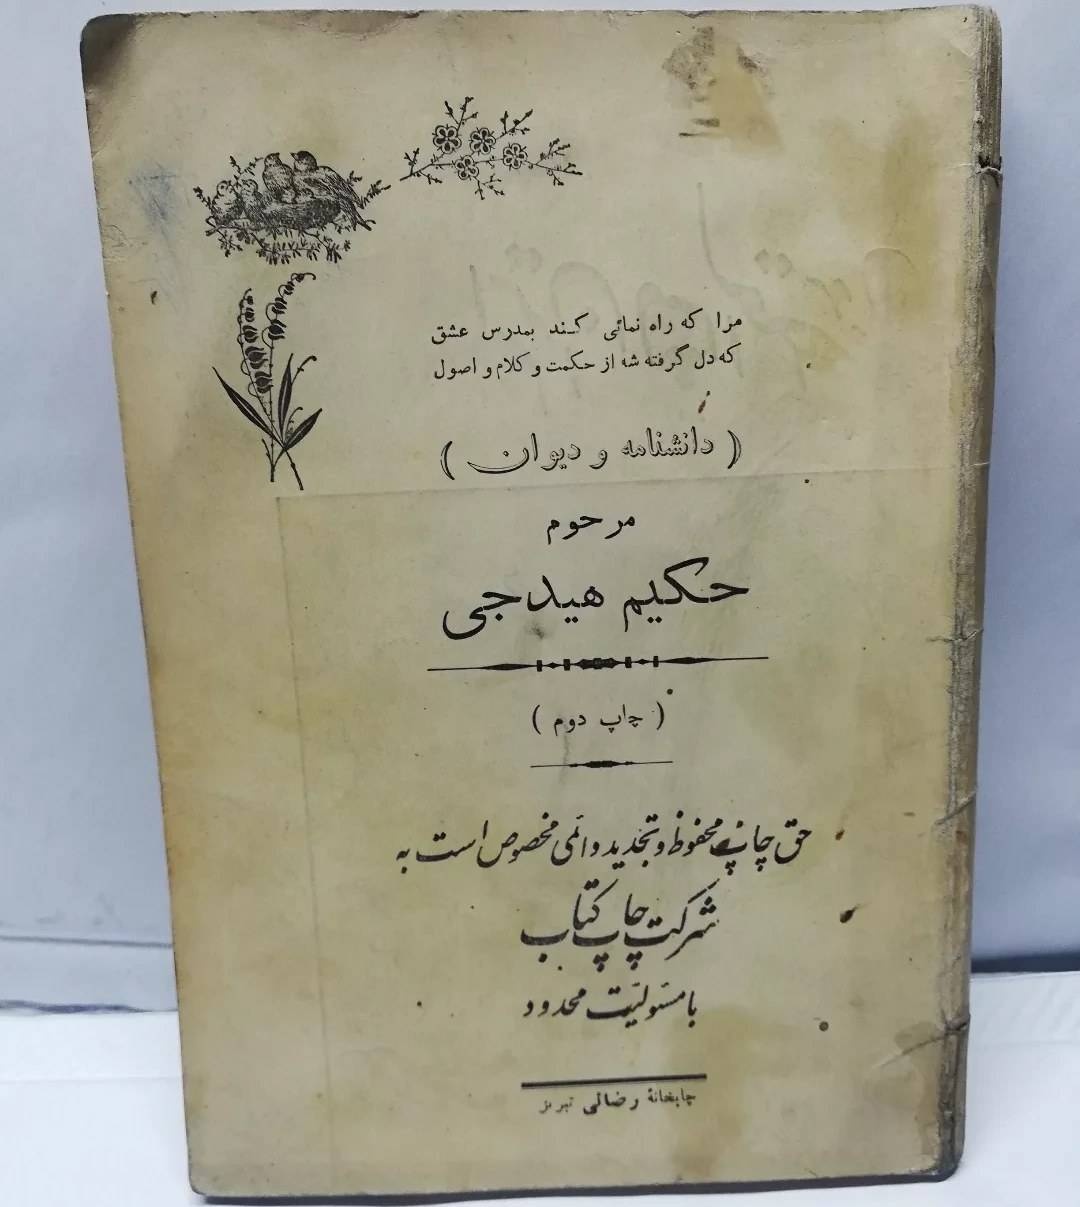 مرا که راه نمائی کند بمدرس عشق
که دل گرفته شه از حکمت و کلام و اصول
( دانشنامه و دیوان )
مرحوم
حکیم هیدجی
( چاپ دوم )
حق چاپ محفوظ و تجدید دائمی مخصوص است به
شرکت چاپ کتاب
با مسئولیت محدود
چاپخانهٔ رضائی تبریز